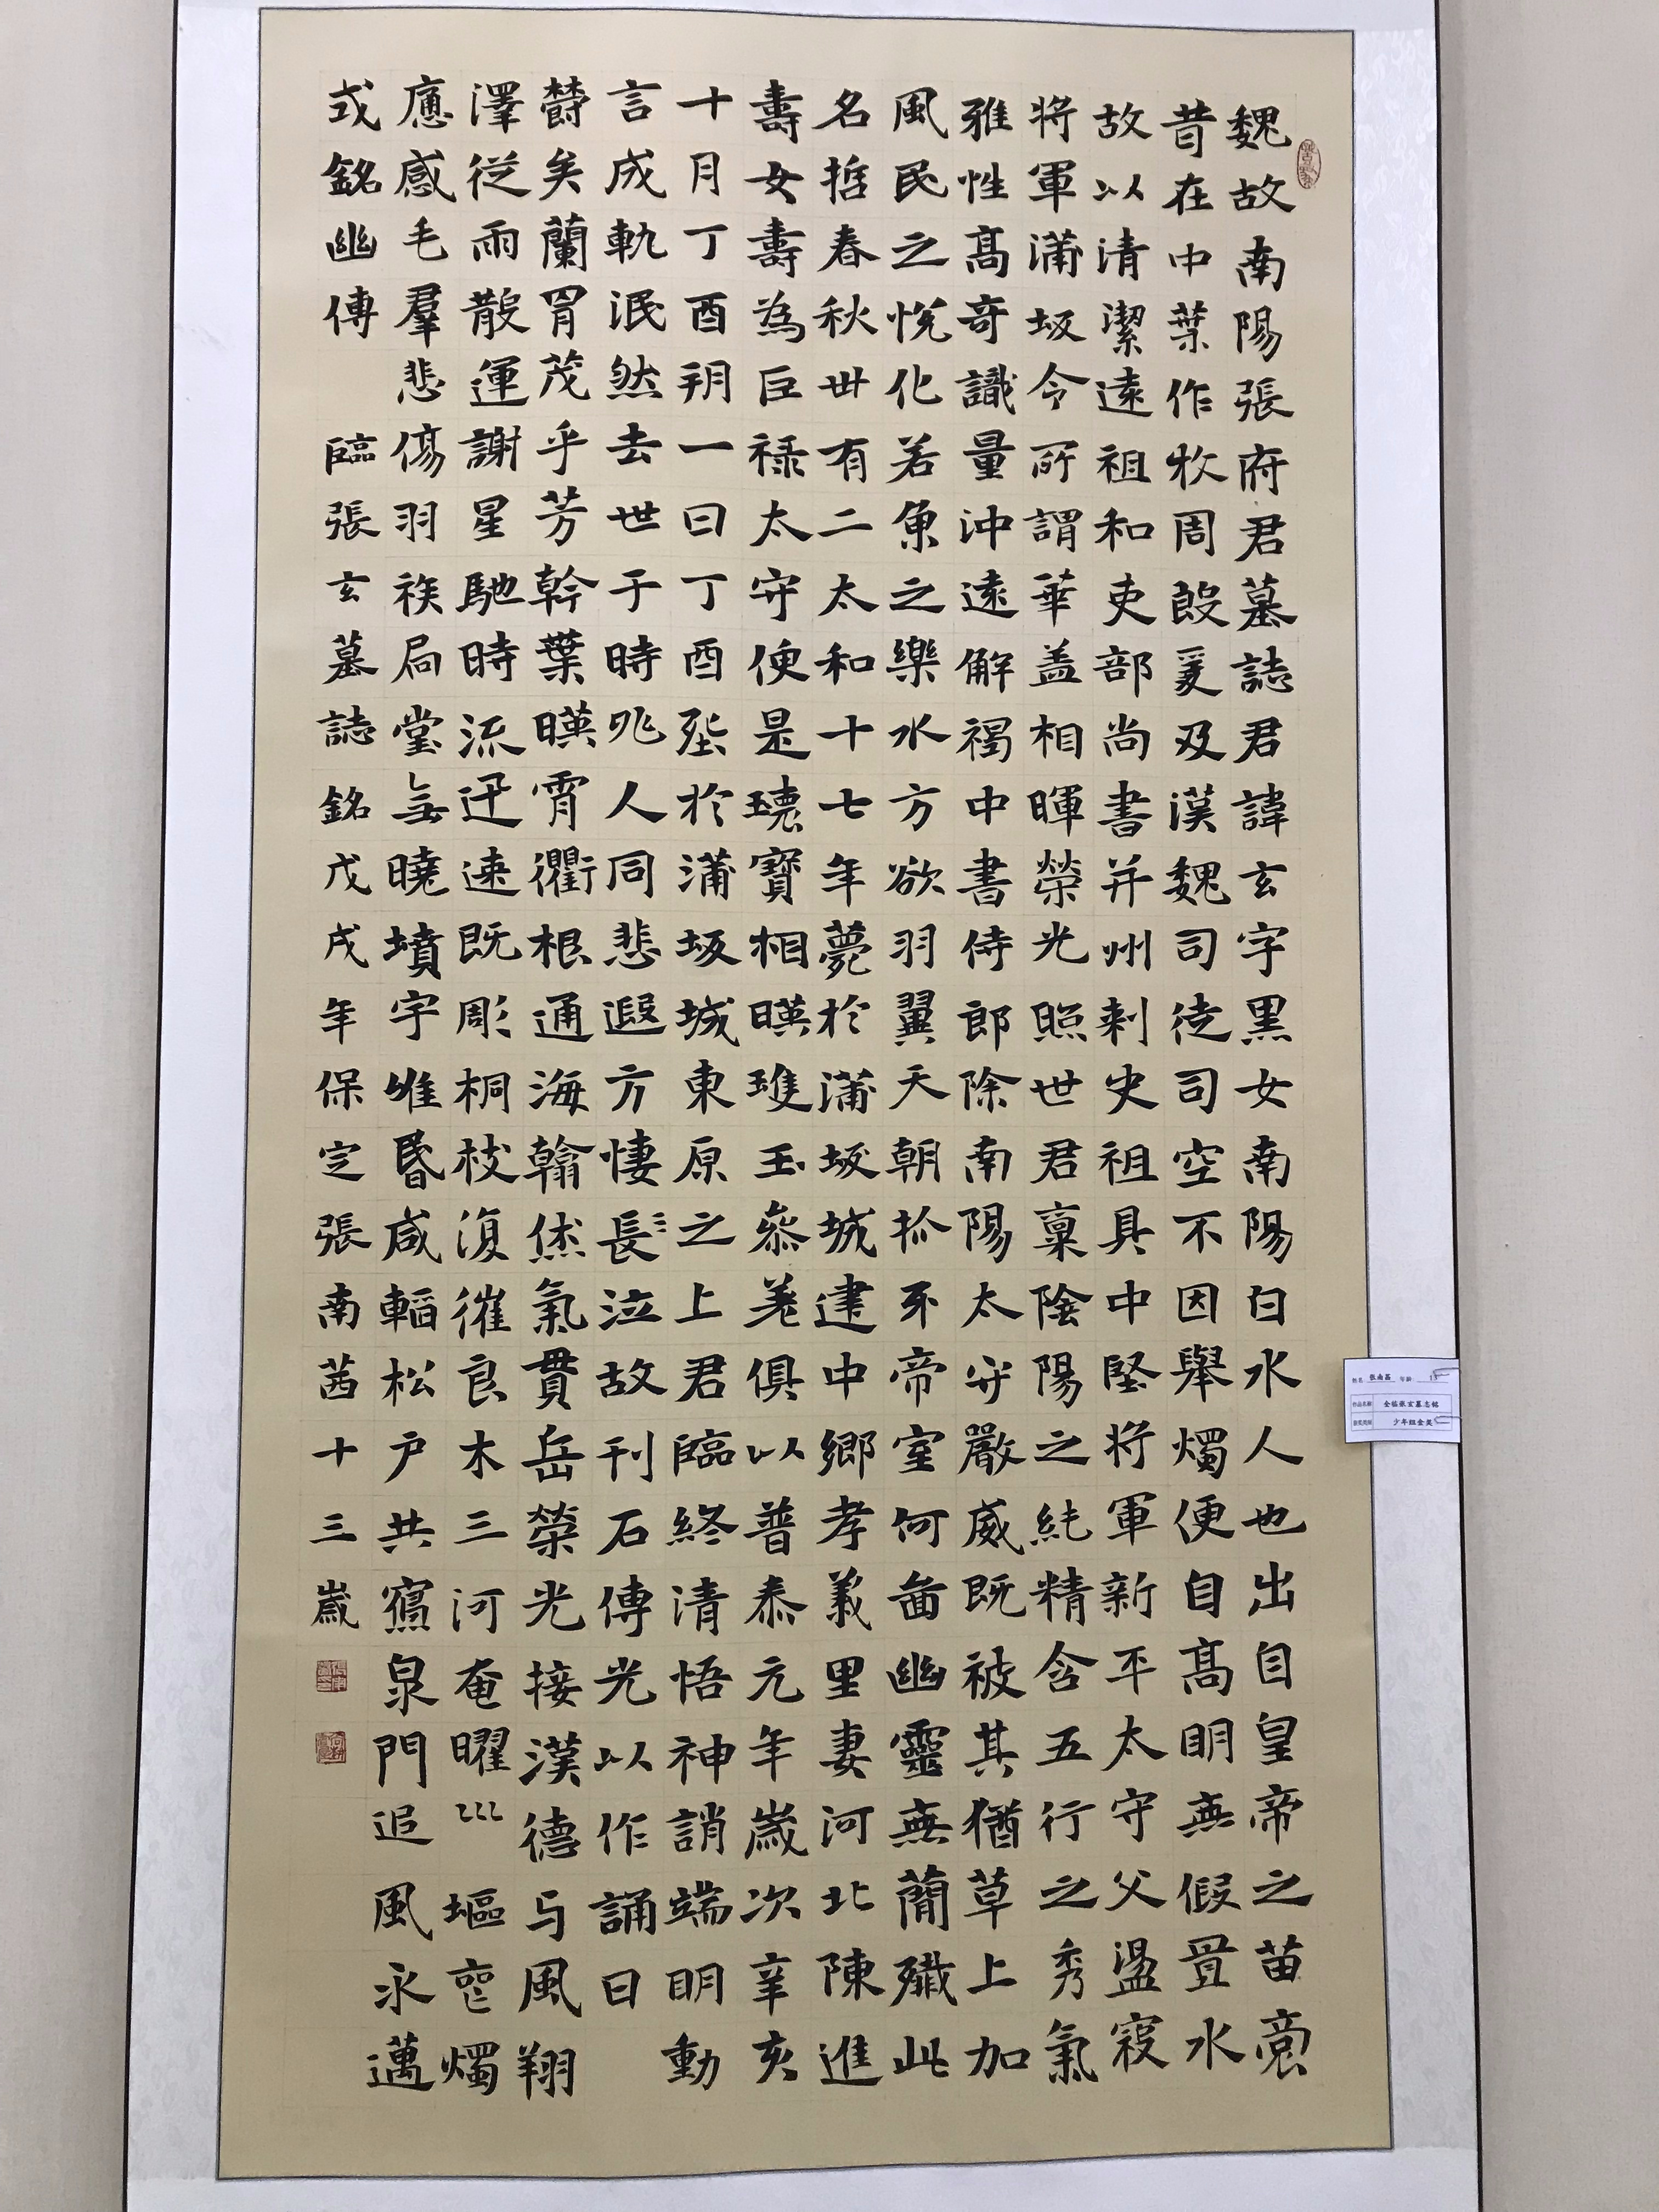 魏故南陽張府君墓誌君諱玄字黑女南陽白水人也出自皇帝之苗裔
昔在中葉作牧周殷爰及漢魏司徒司空不因舉燭便自高明無假置水
故以清潔遠祖和吏部尚書并州刺史祖具中堅將軍新平太守父盪寇
將軍蒲坂令所謂華蓋相暉榮光照世君稟陰陽之純精含五行之秀氣
雅性高奇識量沖遠解褐中書侍郎除南陽太守嚴威既被其猶草上加
風民之悅化若魚之樂水方欲羽翼天朝抓牙帝室何啚幽靈無簡殲此
名哲春秋卅有二太和十七年薨於蒲坂城建中鄉孝義里妻河北陳進
壽女壽為巨祿太守便是瓌寶相暎瓊玉參差俱以普泰元年歲次辛亥
十月丁酉朔一日丁酉葬於蒲坂城東原之上君臨終清悟神誚端明動
言成軌泯然去世于時兆人同悲遐方悽長〻泣故刊石傳光以作誦曰
欝矣蘭胄茂乎芳幹葉暎霄衢根通海翰倐氣貫岳榮光接漢德与風翔
澤從雨散運謝星馳時流迅速既彫桐枝復摧良木三河奄曜巛塸喪燭
應感毛羣悲傷羽族扃堂無曉墳宇唯昏咸韜松戶共寢泉門追風永邁
式銘幽傳 臨張玄墓誌銘戊戌年保定張南茜十三歲
姓名 张南茜 年龄 13
作品名称 全临张玄墓志铭
获奖类别 少年组金奖